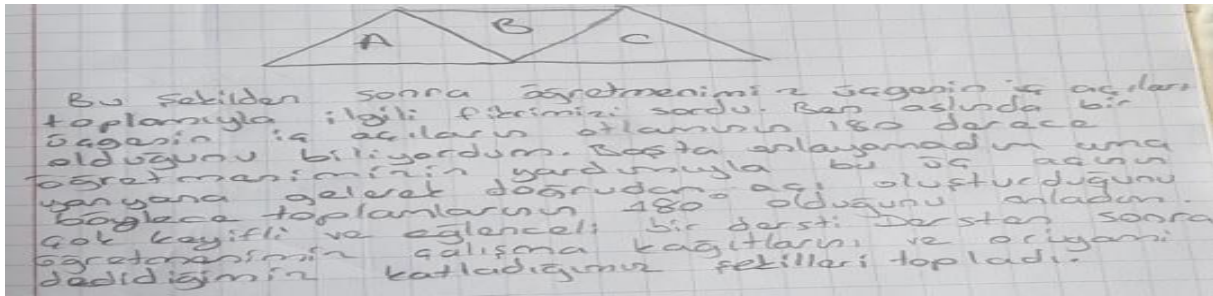 A B C
Bu şekilden sonra öğretmenimiz üçgenin iç açıları
toplamıyla ilgili fikrimizi sordu. Ben aslında bir
üçgenin iç açıların otlamının 180 derece
olduğunu biliyordum. Başta anlayamadım ama
öğretmenimizin yardımıyla bu üç açının
yanyana gelerek doğrudan açı oluşturduğunu
böylece toplamlarının 180° olduğunu anladım.
Çok keyifli ve eğlenceli bir dersti. Dersten sonra
öğretmenimin çalışma kağıtlarını ve origami
dedidiğimiz katladığımız şekilleri topladı.